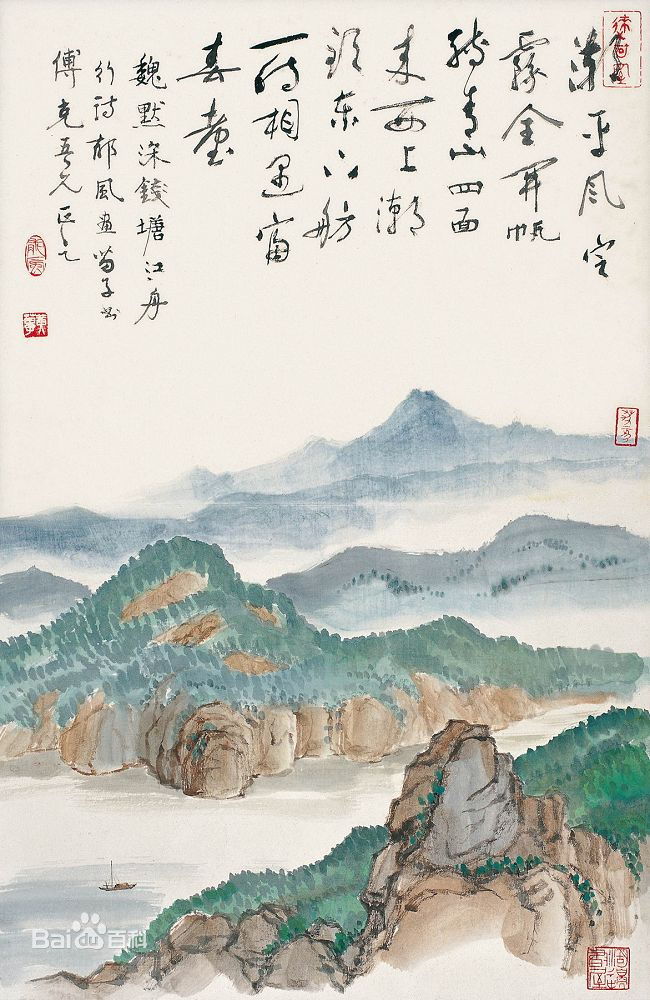 平风定
霧全开帆
轉青山四面
来西上潮
頭東下舫
一时相遇富
春臺
魏默深錢塘江舟
行诗郁風画苗子書
傅克吾兄正之
Bai百科